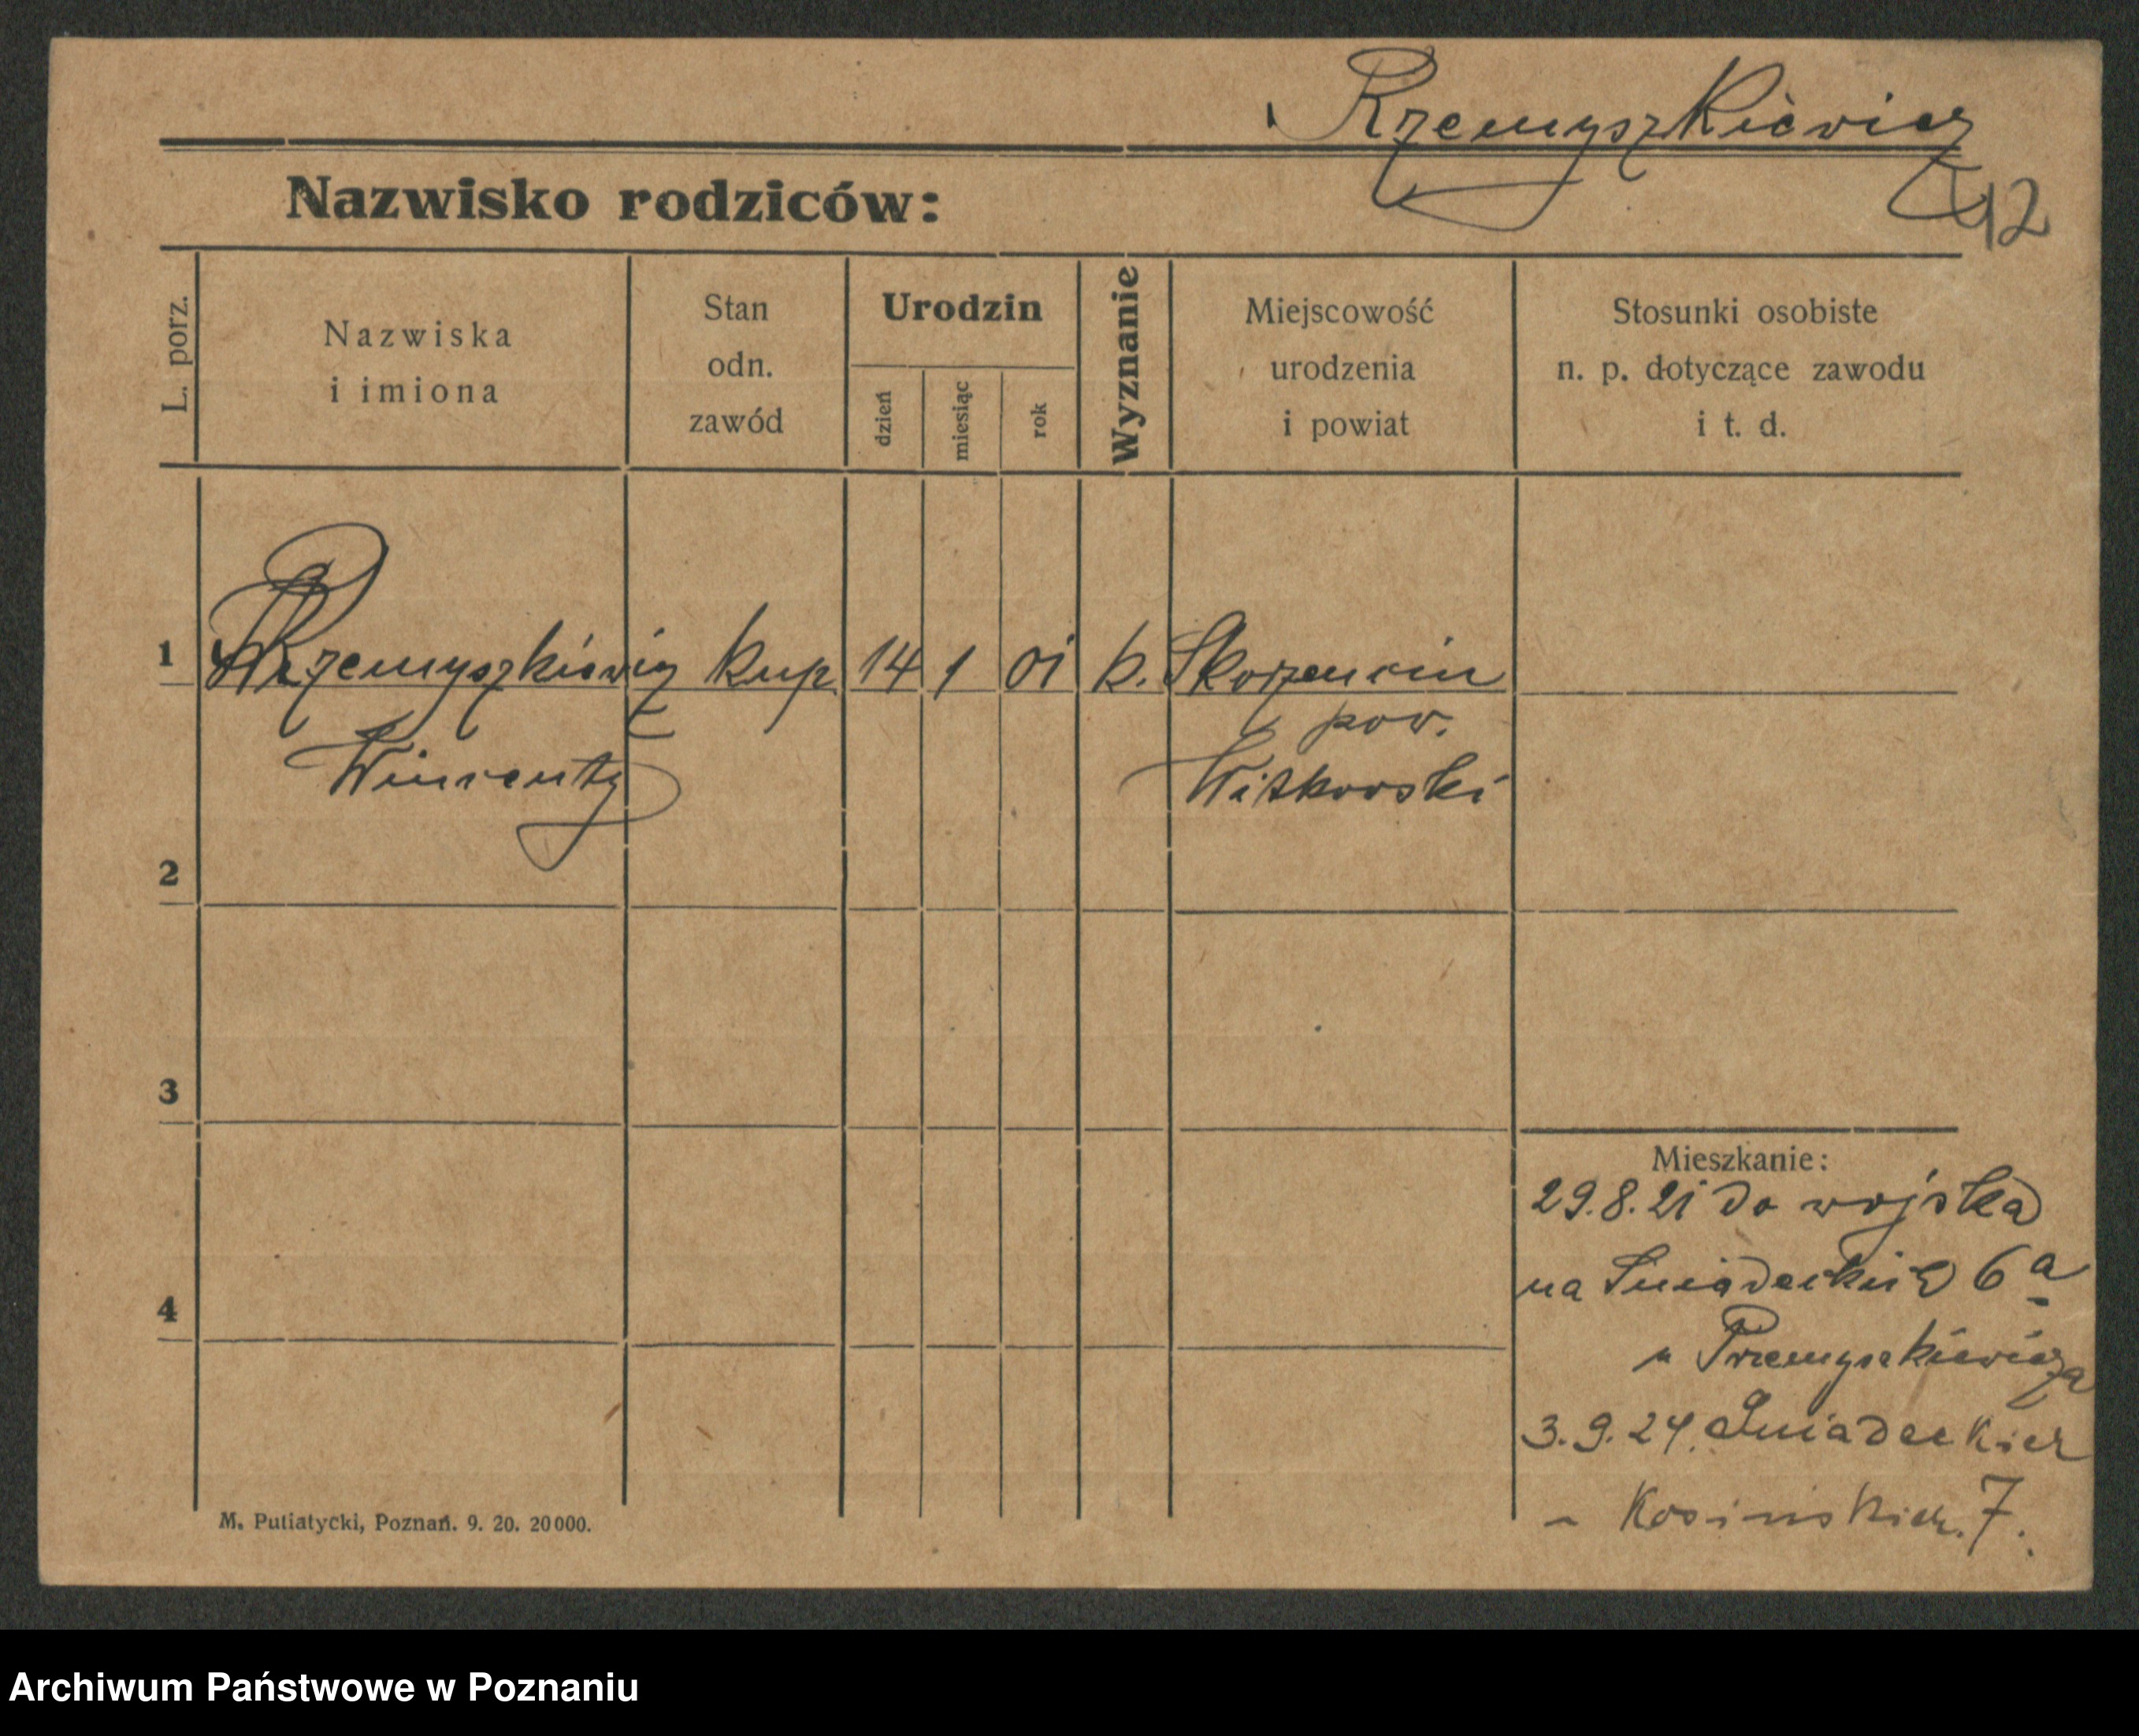 Rzemyszkiewicz
42
Nazwisko rodziców:
L. porz.
Nazwiska
i imiona
Stan
odn.
zawód
Urodzin
dzień
miesiąc
rok
Wyznanie
Miejscowość
urodzenia
i powiat
Stosunki osobiste
n. p. dotyczące zawodu
i t. d.
1 Rzemyszkiewicz kup. 14 1 01 k. Skorzencin
pow.
Wincenty Witkowski
2
3
4
Mieszkanie:
29.8.21 do wojska
na Śniadeckich 6a
u Przemyszkiewicza
3.9.24. Śniadeckich
- Kosińskich. 7.
M. Putiatycki, Poznań. 9. 20. 20000.
Archiwum Państwowe w Poznaniu